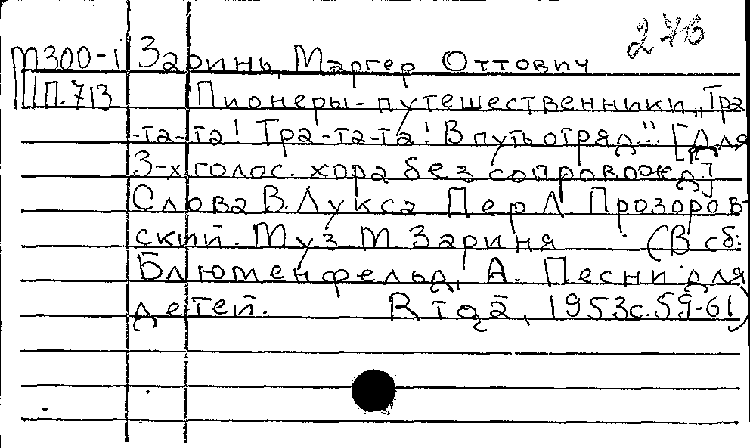 276
М300-1 Заринь, Маргер Оттович
П.713 Пионеры-путешественники „Тра
-та-та! Тра-та-та! В путь отряд..." [Для
3-х голос. хора без сопровожд.]
Слова В. Лукса Пер Л Прозоров-
ский. Муз М. Зариня (В сб:
Блюменфельд, А. Песни для
детей. Rīgā, 1953 с. 59-61)